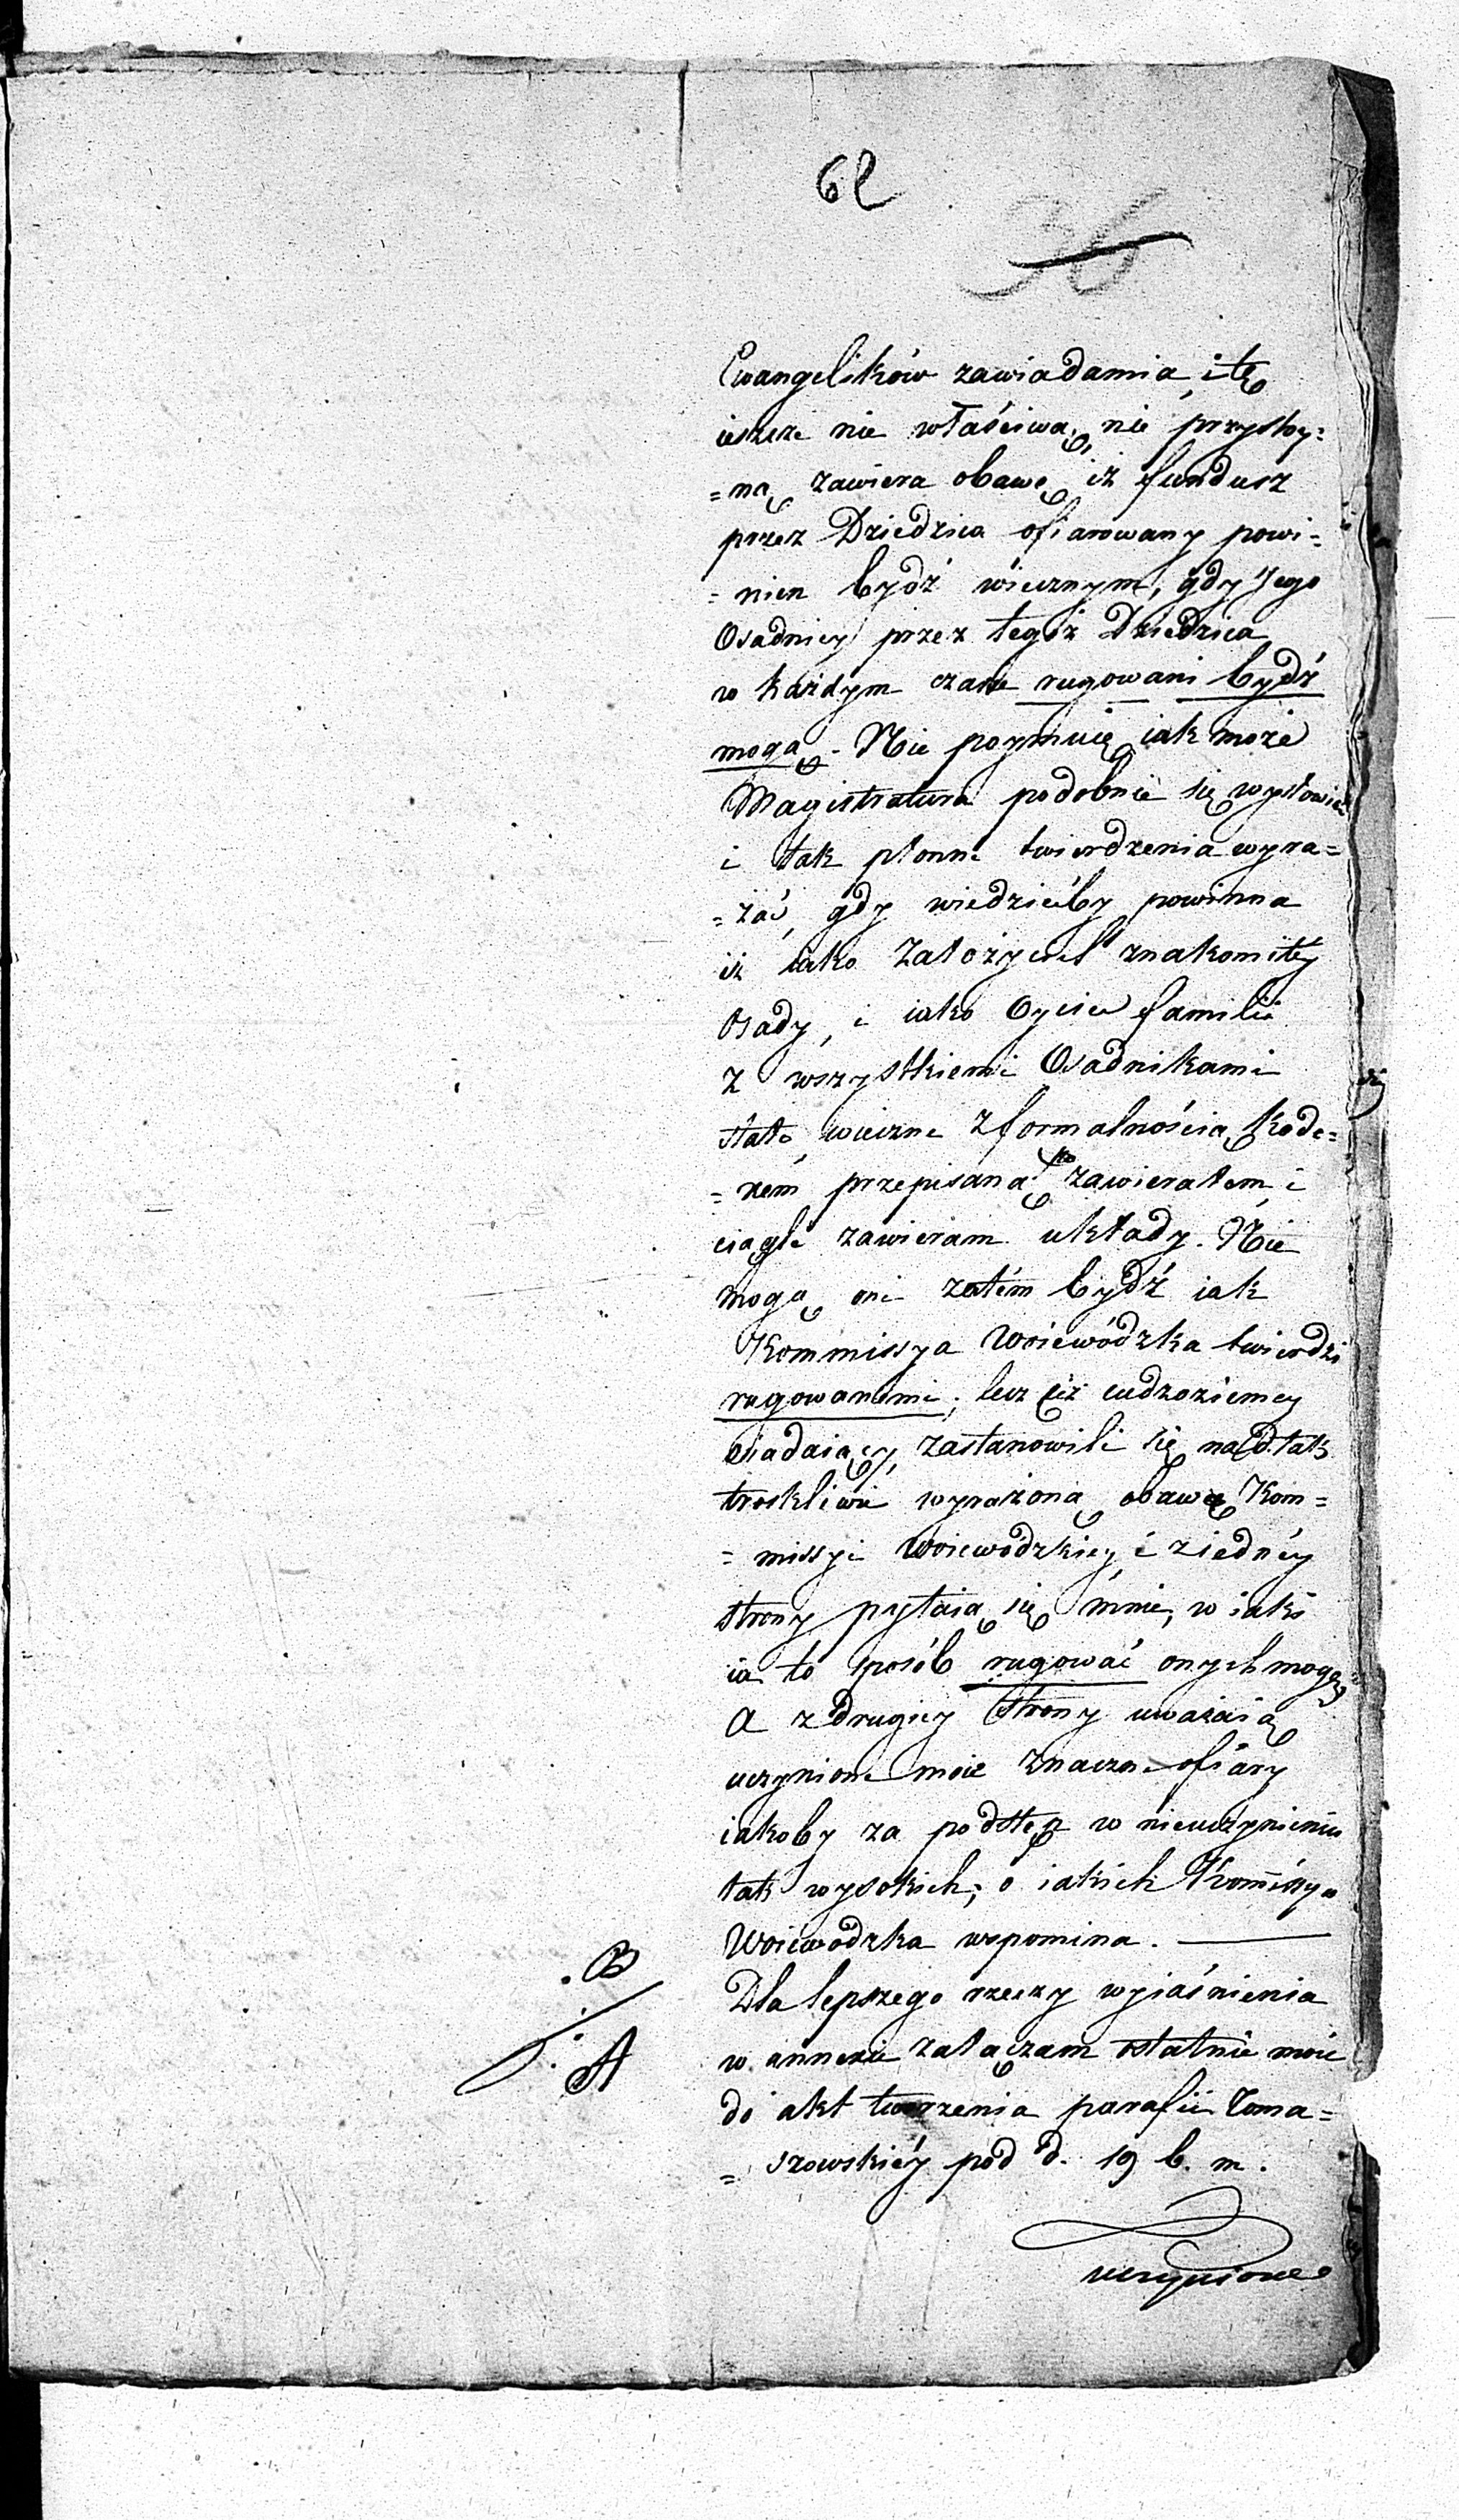 62
36
Ewangelików zawiadamia, i tę
ieszcze nie właściwą, nie przystoy=
=ną zawiera obawę, iż fundusz
przez Dziedzica ofiarowany powi=
=nien bydź wiecznym, gdy Jego
Osadnicy przez tegoż Dziedzica
w każdym czasie rugowani bydź
mogą. Nie poymuię iak może
Magistratura podobnie się wysłowić
i tak płonne twierdzenia wyra=
=żać, gdy wiedziećby powinna
iż iako Założyciel znakomitéy
Osady, i iako Oyciec familii
z wszystkiemi Osadnikami
stałe, wieczne z formalnością Kode=
=xem przepisaną zawierałem, i
ciągle zawieram układy. Nie
mogą oni zatém bydź iak
Kommissya Woiewódzka twierdzi
rugowanemi; lecz ciż cudzoziemcy
osiadaiący, zastanowili się nad tak
troskliwie wyrażoną obawą Kom=
=missyi Woiewódzkiey, i z iednéy
strony pytaią się mnie, w iaki
ia to sposób rugować onych mogę,
a z drugiey strony uważaią
uczynione moie znaczne ofiary
iakoby za podstęp w nieuczynieniu
tak wysokich, o iakich Kommissya
Woiewódzka wspomina.
Dla lepszego rzeczy wyiaśnienia
w annexie załączam ostatnie moie
do akt tworzenia parafii Toma=
=szowskiéy pod d. 19 b. m.
uczynione
B
A